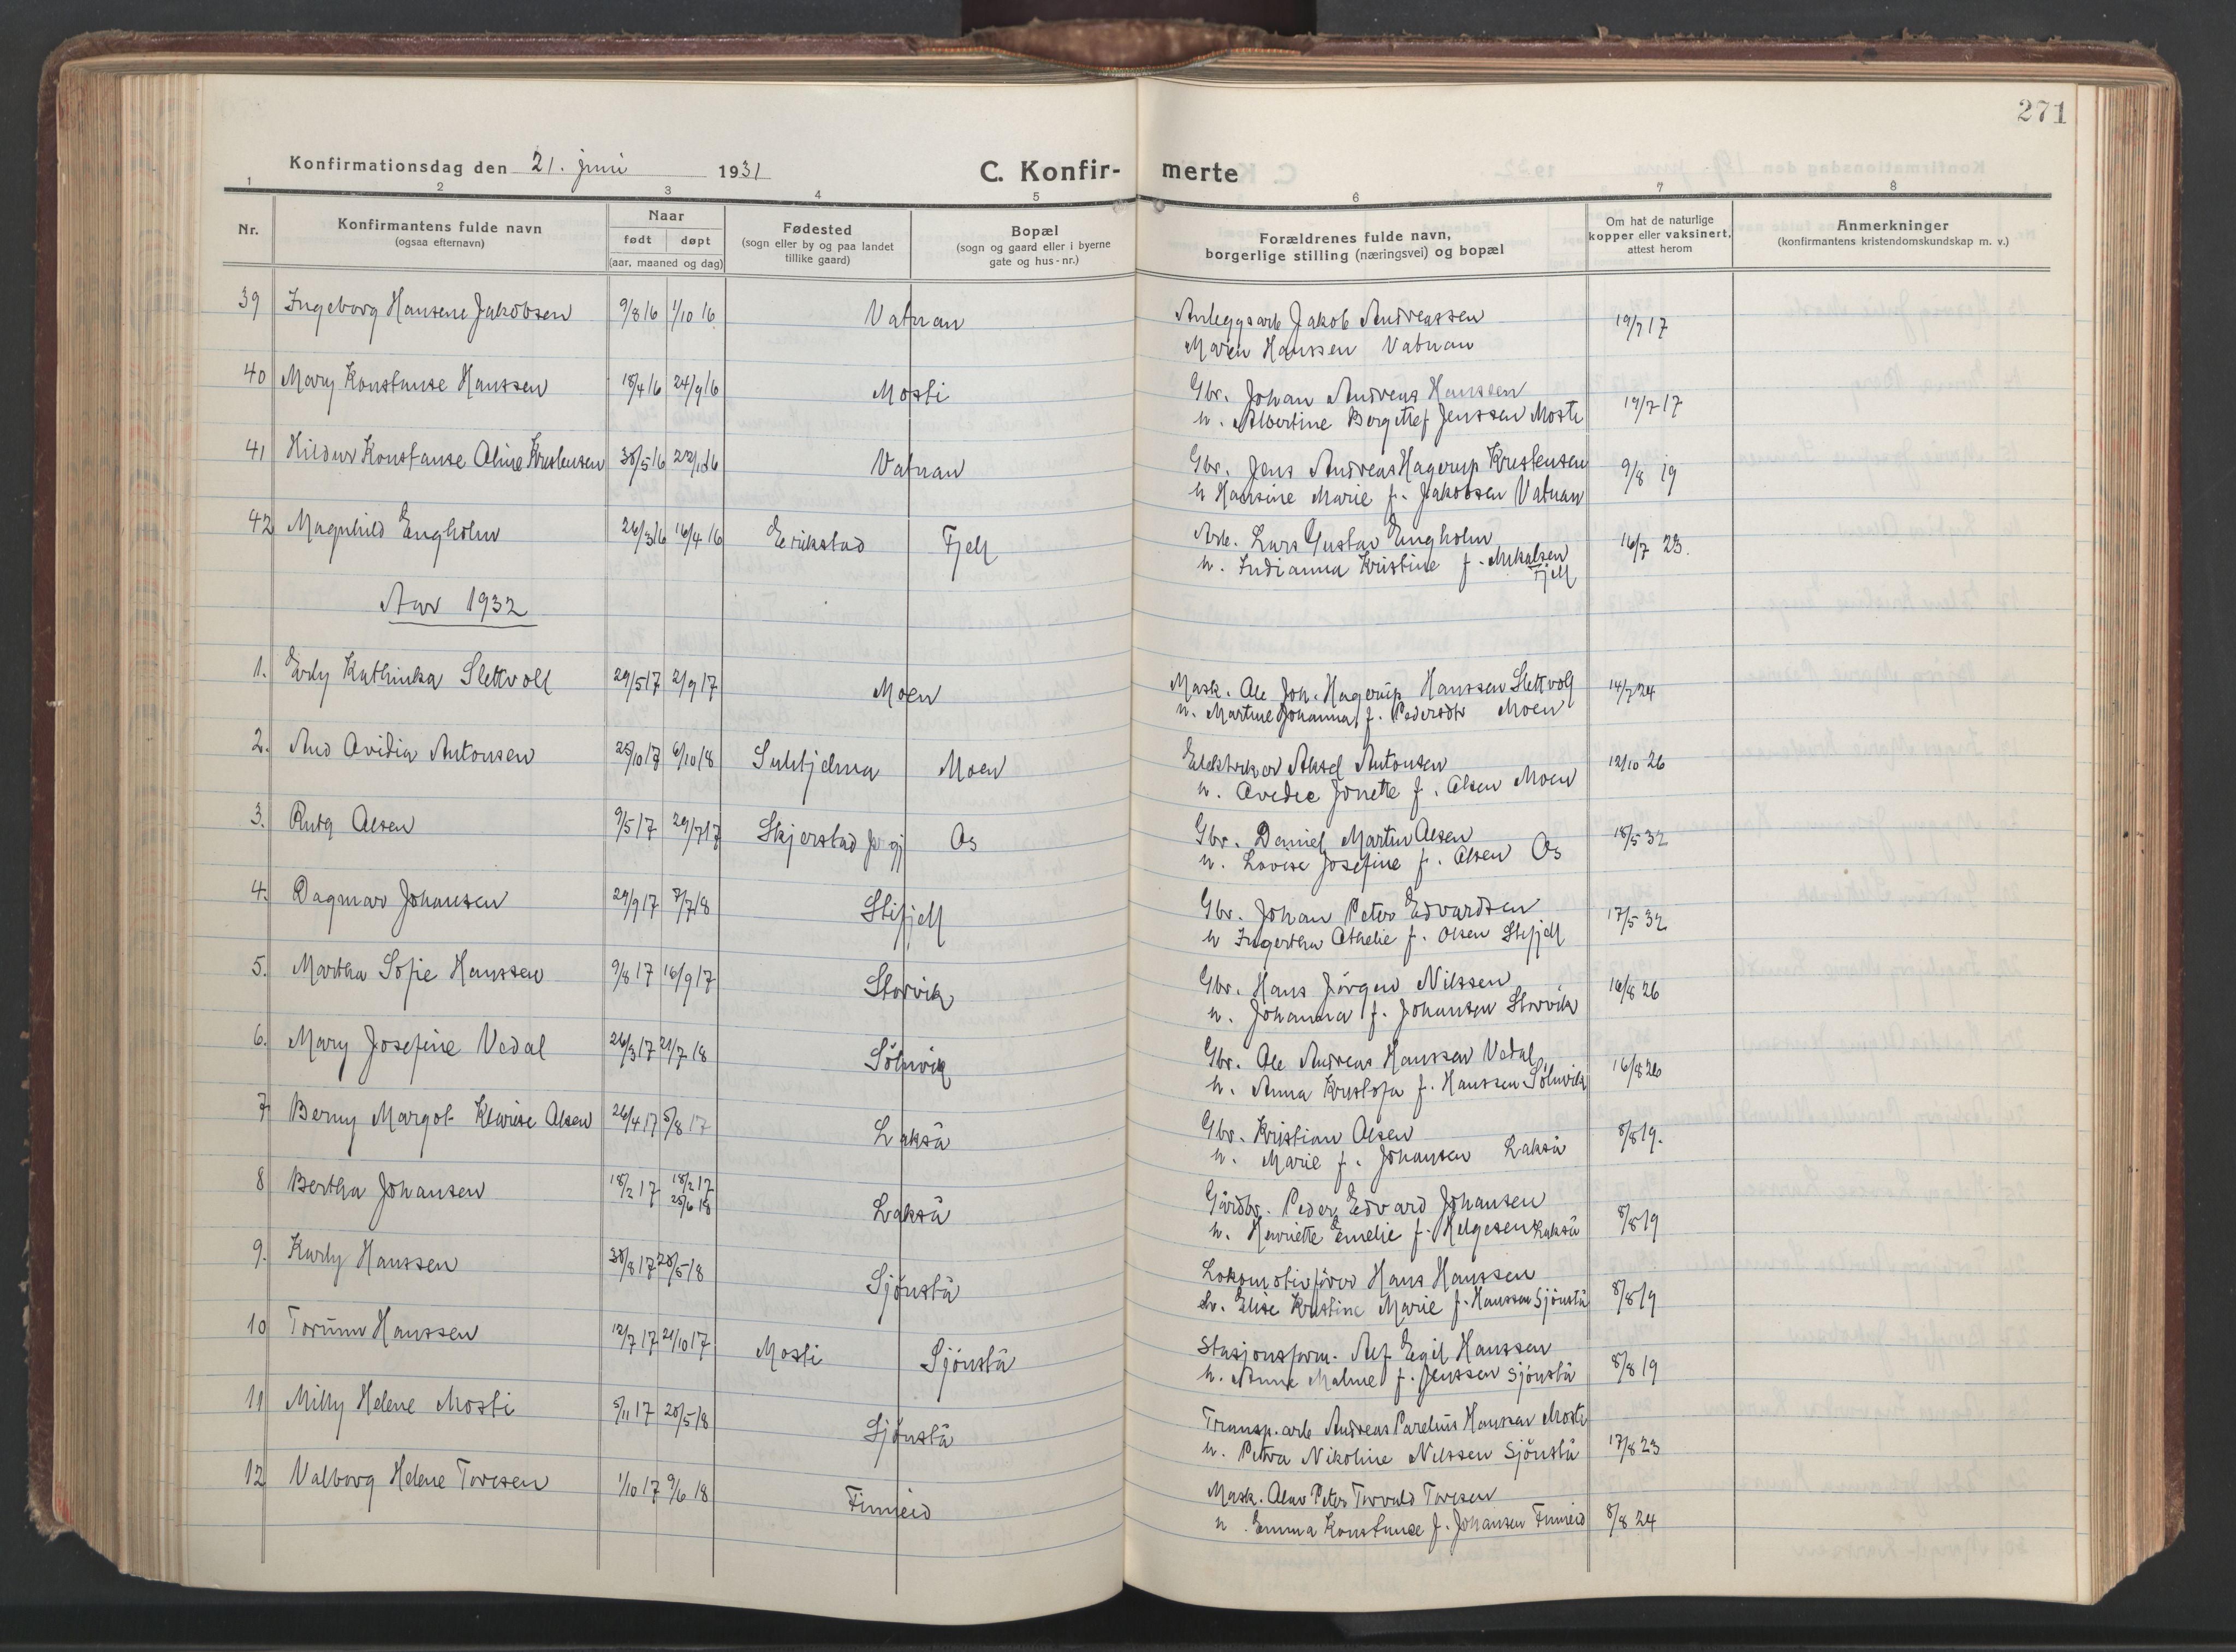 271
Konfirmationsdag den 21. juni 1931 C. Konfir- merte
1 2 3 4 5 6 7 8
Nr.
Konfirmantens fulde navn
(ogsaa efternavn)
Naar
født døpt
(aar, maaned og dag)
Fødested
(sogn eller by og paa landet
tillike gaard)
Bopæl
(sogn og gaard eller i byerne
gate og hus-nr.)
Forældrenes fulde navn,
borgerlige stilling (næringsvei) og bopæl
Om hat de naturlige
kopper eller vaksinert,
attest herom
Anmerkninger
(konfirmantens kristendomskundskap m. v.)
39 Ingeborg Hansene Jakobsen 9/8 16 1/10 16 Vatnan Anleggsarb Jakob Andreassen 19/7 17
Maren Hanssen Vatnan
40 Mary Konstanse Hanssen 18/4 16 24/9 16 Mosti Gbr. Johan Andreas Hanssen 19/7 17
h. Albertine Bergitte f Jenssen Mosti
41 Hildur Konstanse Aline Kristensen 30/5 16 22/10 16 Vatnan Gbr. Jens Andreas Hagerup Kristensen 9/8 19
h Hansine Marie f. Jakobsen Vatnan
42 Magnhild Engholm 26/3 16 16/4 16 Erikstad Fjell Arb. Lars Gustav Engholm 16/7 23.
h. Indianna Kristine f. Mikalsen
Fjell
Aar 1932
1. Erly Kathinka Slettvoll 29/5 17 2/9 17 Moen Mask. Ole Joh. Hagerup Hanssen Slettvoll 14/7 24
h. Martine Johanna f. Pedersdtr Moen
2. Aud Ovidia Antonsen 25/10 17 6/10 18 Sulitjelma Moen Elektriker Aksel Antonsen 12/10 26
h. Ovedie Jonette f. Olsen Moen
3. Ruth Olsen 9/5 17 29/7 17 Skjerstad prgj Os Gbr. Daniel Martin Olsen 18/5 32
h. Lovise Josefine f. Olsen Os
4. Dagmar Johansen 29/9 17 7/7 18 Stifjell Gbr. Johan Peter Edvardsen 17/5 32
h Ingertha Othelie f. Olsen Stifjell
5. Martha Sofie Hanssen 9/8 17 16/9 17 Storvik Gbr. Hans Jörgen Nilssen 16/8 26
h. Johanna f. Johansen Storvik
6. Mary Josefine Vedal 26/3 17 21/7 18 Sölnvik Gbr. Ole Andreas Hanssen Vedal 16/8 26
h. Anna Kristofa f. Hanssen Sölnvik
7 Berny Margot Klarise Olsen 26/4 17 5/8 17 Lakså Gbr. Kristian Olsen 8/8 19.
h. Marie f. Johansen Lakså
8 Bertha Johansen 18/2 17 18/2 17 Lakså Gårdbr. Peder Edvard Johansen 8/8 19
25/6 18 h. Henriette Emelie f. Helgesen Lakså
9. Karly Hanssen 30/8 17 20/5 18 Sjönstå Lokomotivförer Hans Hanssen 8/8 19
h. Elise Kristine Marie f. Hanssen Sjönstå
10 Torunn Hanssen 12/7 17 21/10 17 Mosti Sjönstå Stasjonsform. Alf Egil Hanssen 8/8 19
h. Anna Malene f. Jenssen Sjönstå
11 Milly Helene Mosti 5/11 17 20/5 18 Sjönstå Transp. arb Andreas Parelius Hanssen Mosti 17/8 23
h. Petra Nikoline Nilssen Sjönstå
12 Valborg Helene Toresen 1/10 17 9/6 18 Finneid Mask. Olav Peter Torvald Toresen 8/8 24
h. Emma Konstanse f. Johansen Finneid